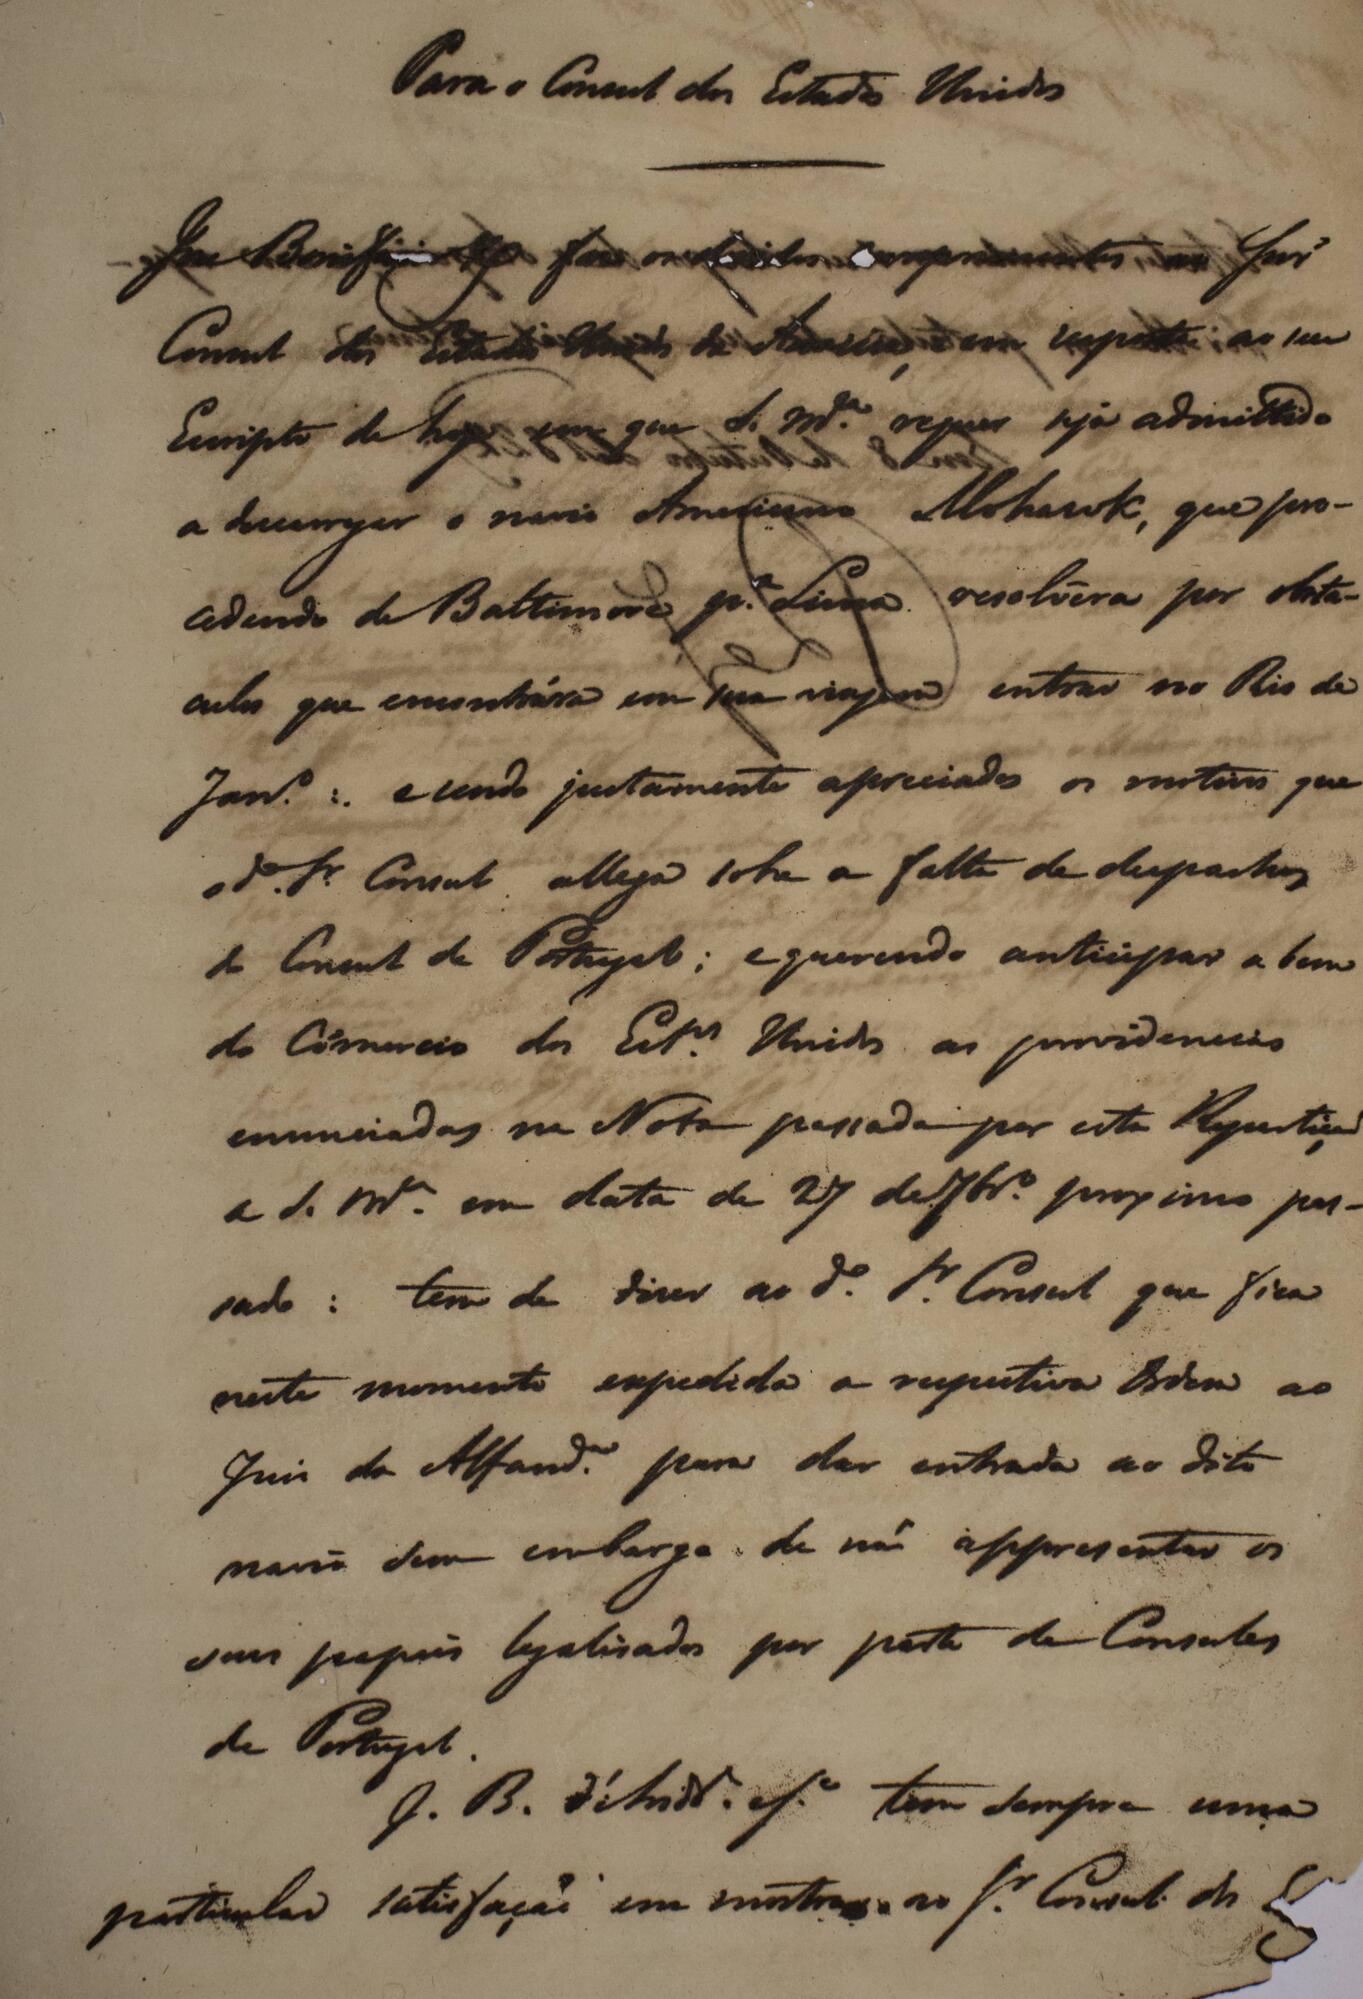 Para o Consul dos Estados Unidos
Joze Bonifacio &ª faz os devidos comprimentos ao Snr
Consul dos Estados Unidos da America, e em resposta ao seu
Escripto de hoje em que S. Mcê. requer seja admittido
a descarregar o navio Americano Mohawk, que pro-
cedendo de Baltimore pª. Lima resolvêra por obsta-
culos que encontrára em sua viagem entrar no Rio de
Janrº.: e sendo justamente apreciados os motivos que
o dº. Sr. Consul allega sobre a falta de despachos
do Consul de Portugal; e querendo anticipar a bem
do Cõmercio dos Estºs. Unidos as providencias
enunciadas na Nota passada por esta Repartiçaõ
a S. Mcê. em data de 27 de 7brº. proximo pas-
sado: tem de dizer ao dº. Sr. Consul que fica
neste momento expedida a respectiva Ordem ao
Juiz da Alfandª. para dar entrada ao dito
navio sem embargo de naõ appresentar os
seus papeis legalisados por parte de Consules
de Portugal.
J. B. d'Andrª. e Sª. tem sempre uma
particular satisfaçaõ em mostrar ao Sr. Consul dos